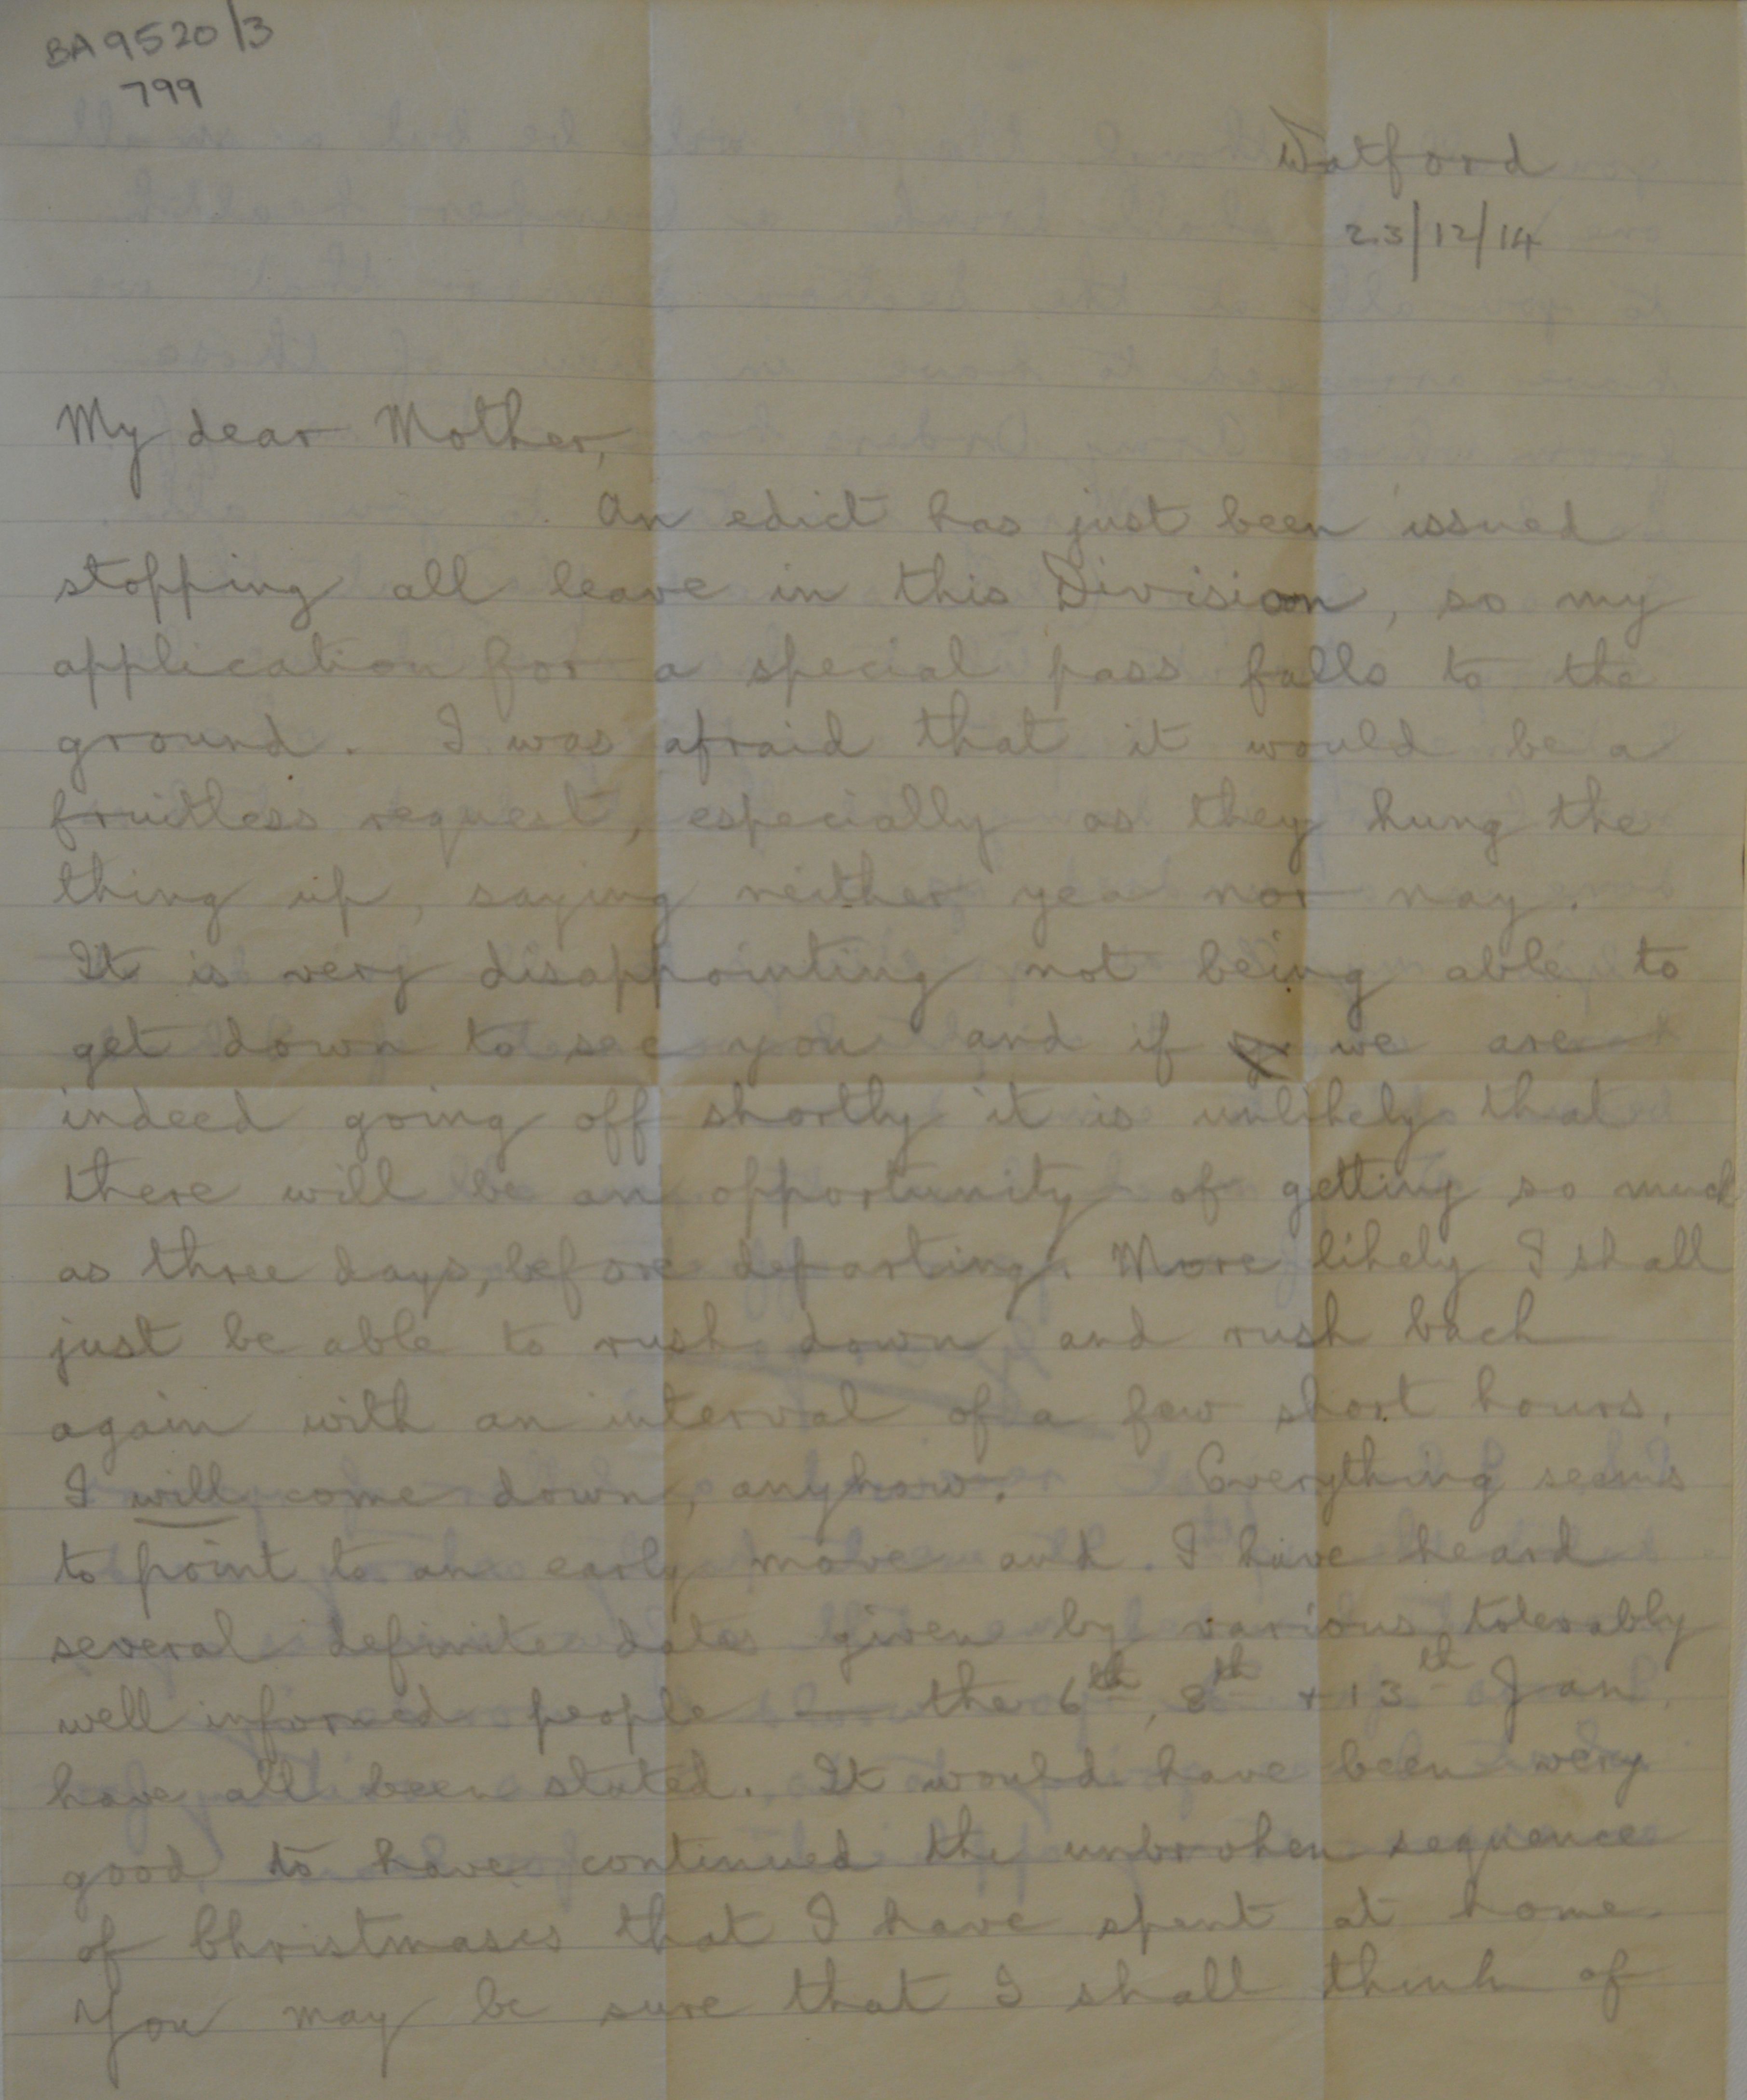 BA9520/3
799
Watford
23/12/14
My dear Mother,
An edict has just been issued
stopping all leave in this Division, so my
application for a special pass falls to the
ground. I was afraid that it would be a
fruitless request, especially as they hung the
thing up, saying neither yea nor nay.
It is very disappointing not being able to
get down to see you and if we are
indeed going off shortly it is unlikely that
there will be an opportunity of getting so much
as three days, before departing. More likely I shall
just be able to rush down and rush back
again with an interval of a few short hours.
I will come down, anyhow. Everything seems
to point to an early move and I have heard
several definite dates given by various tolerably
well informed people — the 6th, 8th + 13th Jan.
have all been stated. It would have been very
good to have continued the unbroken sequence
of Christmases that I have spent at home.
You may be sure that I shall think of